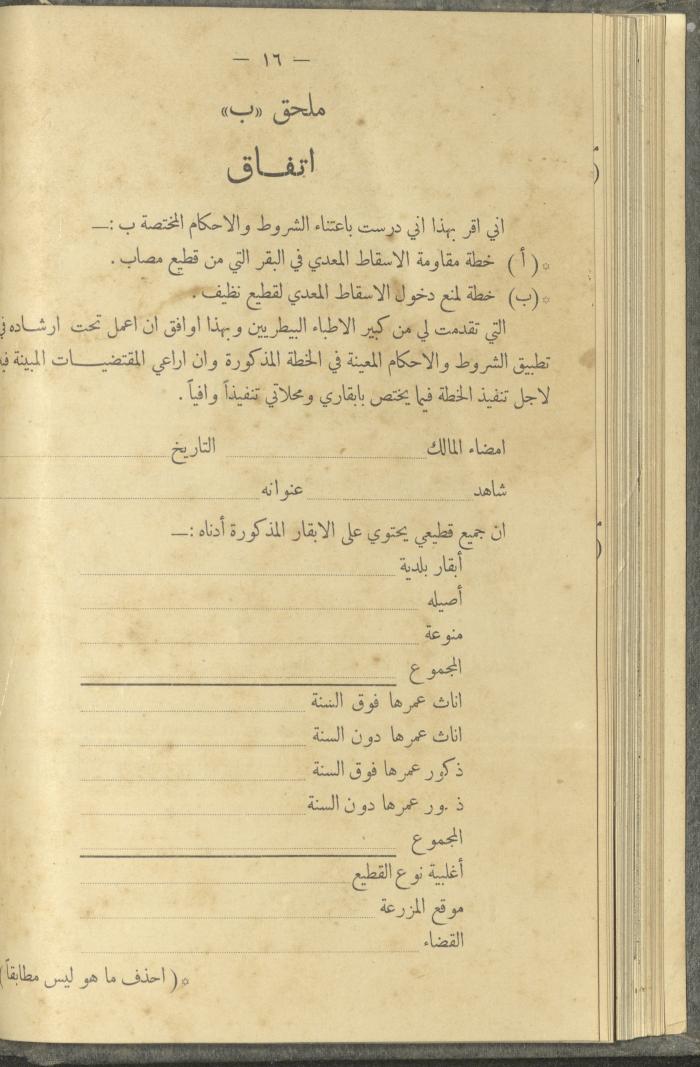 — ١٦ —
ملحق «ب»
اتفـاق
اني اقر بهذا اني درست باعتناء الشروط والاحكام المختصة ب :—
*(أ) خطة مقاومة الاسقاط المعدي في البقر التي من قطيع مصاب .
*(ب) خطة لمنع دخول الاسقاط المعدي لقطيع نظيف .
التي تقدمت لي من كبير الاطباء البيطريين وبهذا اوافق ان اعمل تحت ارشاده في
تطبيق الشروط والاحكام المعينة في الخطة المذكورة وان اراعي المقتضيـات المبينة
لاجل تنفيذ الخطة فيما يختص بابقاري ومحلاتي تنفيذاً وافياً .
امضاء المالك التاريخ
شاهد عنوانه
ان جميع قطيعي يحتوي على الابقار المذكورة أدناه :—
أبقار بلدية
أصيله
منوعة
المجموع
اناث عمرها فوق السنة
اناث عمرها دون السنة
ذكور عمرها فوق السنة
ذ ور عمرها دون السنة
المجموع
أغلبية نوع القطيع
موقع المزرعة
القضاء
*(احذف ما هو ليس مطابقاً)